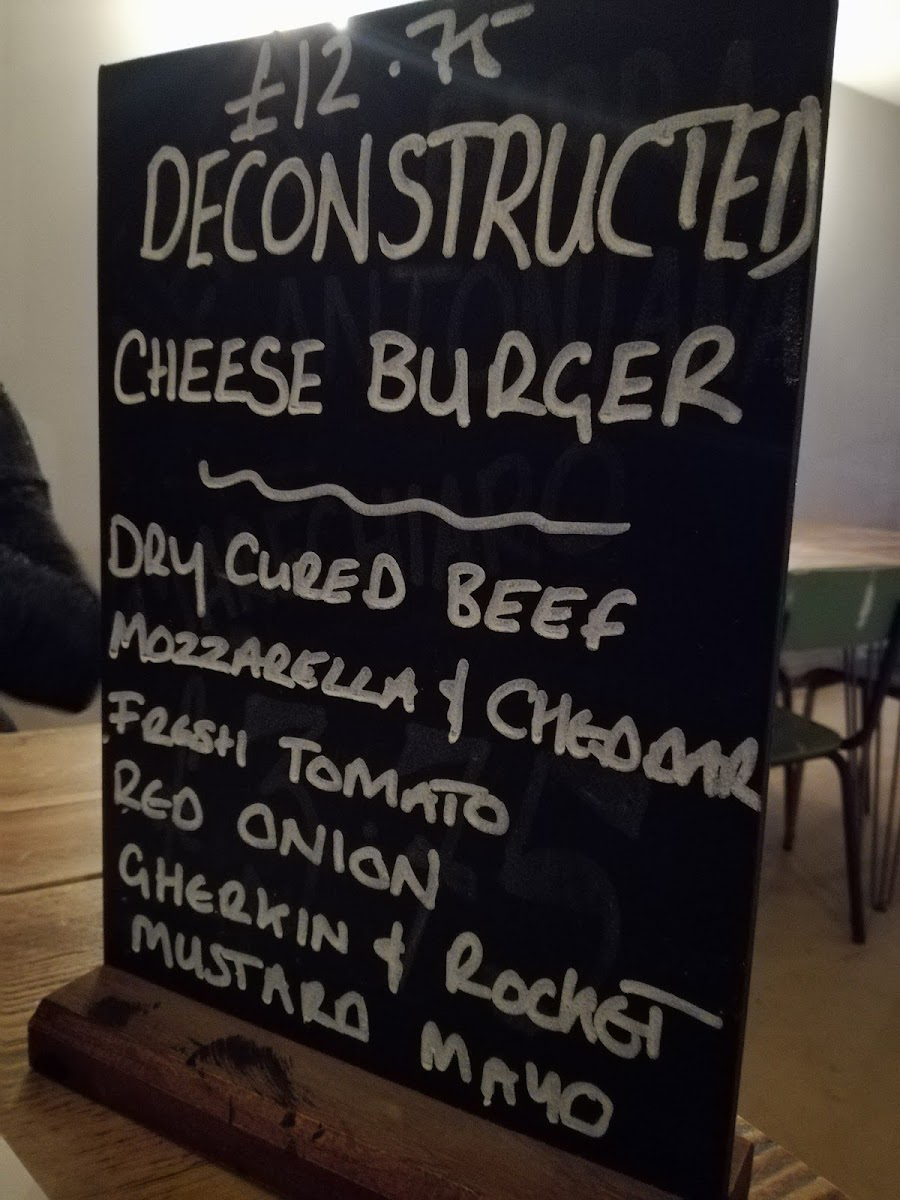 £12.75
DECONSTRUCTED
CHEESE BURGER
DRY CURED BEEF
MOZZARELLA & CHEDDAR
FRESH TOMATO
RED ONION
GHERKIN & ROCKET
MUSTARD MAYO